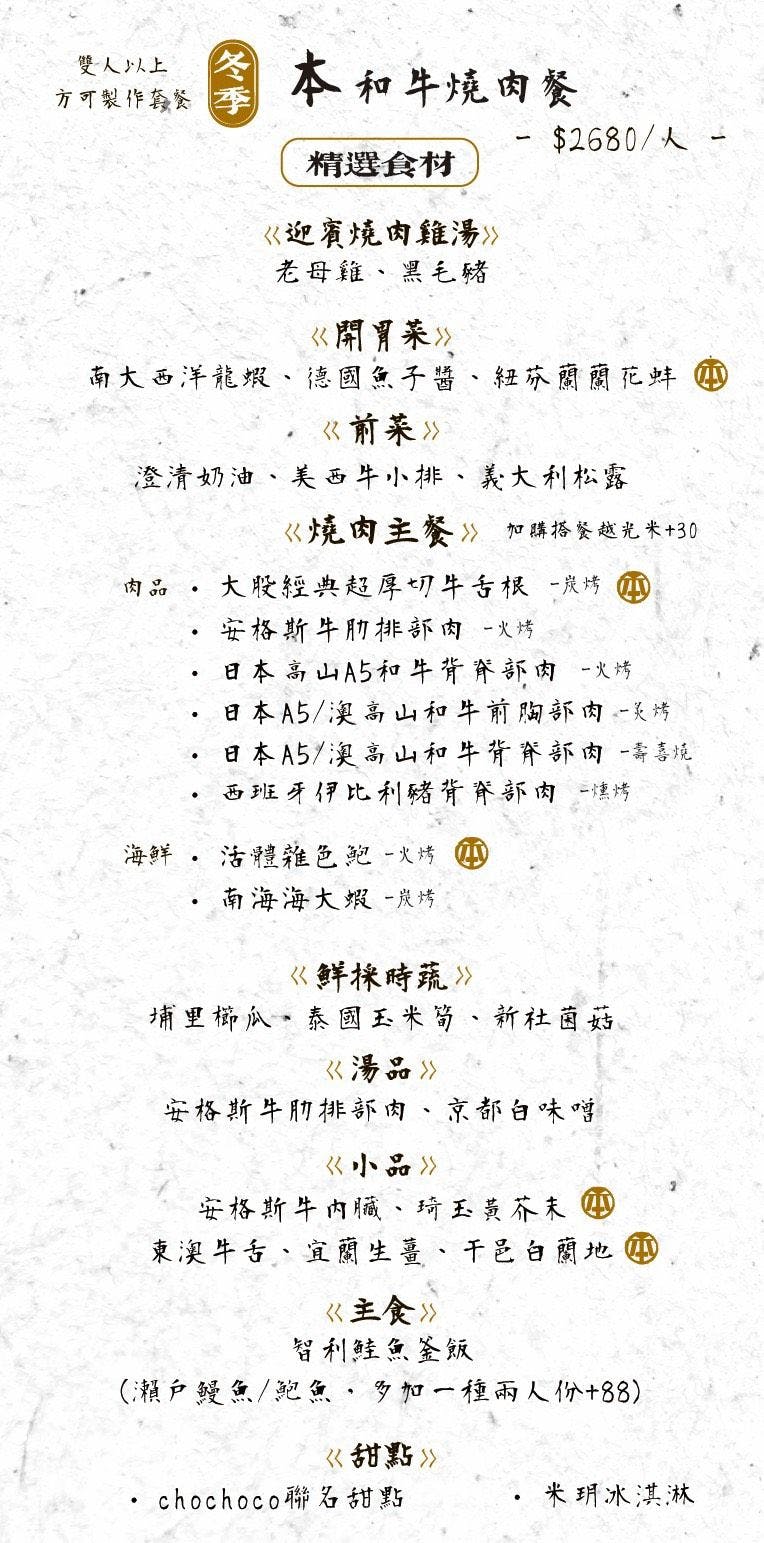 雙人以上
方可製作套餐
冬季
本和牛燒肉餐
- $2680/人 -
精選食材
《迎賓燒肉雞湯》
老母雞、黑毛豬
《開胃菜》
南大西洋龍蝦、德國魚子醬、紐芬蘭蘭花蚌 本
《前菜》
澄清奶油、美西牛小排、義大利松露
《燒肉主餐》 加購搭餐越光米+30
肉品 · 大股經典超厚切牛舌根 -炭烤 本
· 安格斯牛肋排部肉 -火烤
· 日本高山A5和牛背脊部肉 -火烤
· 日本A5/澳高山和牛前胸部肉 -炙烤
· 日本A5/澳高山和牛背脊部肉 -壽喜燒
· 西班牙伊比利豬背脊部肉 -燻烤
海鮮 · 活體雜色鮑 -火烤 本
· 南海海大蝦 -炭烤
《鮮採時蔬》
埔里櫛瓜、泰國玉米筍、新社菌菇
《湯品》
安格斯牛肋排部肉、京都白味噌
《小品》
安格斯牛內臟、琦玉黃芥末 本
東澳牛舌、宜蘭生薑、干邑白蘭地 本
《主食》
智利鮭魚釜飯
(瀨戶鰻魚/鮑魚，多加一種兩人份+88)
《甜點》
· chochoco聯名甜點 · 米玥冰淇淋